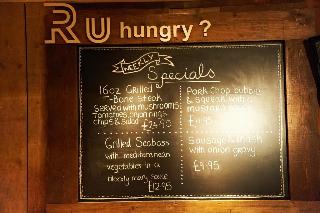 RU hungry ?
WEEKLY
Specials
16oz Grilled
T-Bone Steak
served with mushrooms
Tomatoes, onion rings
chips & salad
Pork Chop bubble
& squeak with a
mustard sauce
Grilled Seabass
with mediterranean
vegetables in a
bloody mary sauce
£12.95
Sausage & mash
with onion gravy
£9.95